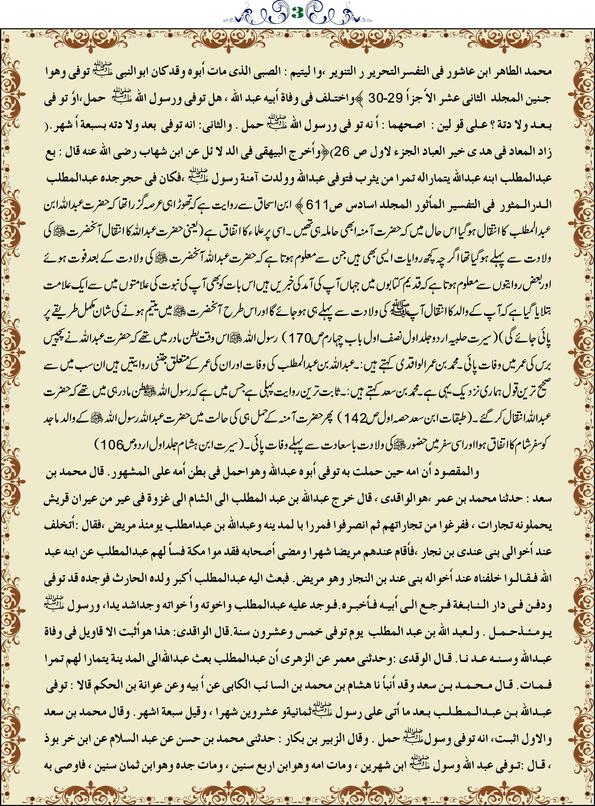 3
محمد الطاهر ابن عاشور فی التفسر التحریر ر التنویر ،وا لیتیم : الصبی الذی مات أبوہ وقدکان ابوالنبی ﷺ توفی وھوا
جنین المجلد الثانی عشر الأ جزأ 29-30 ﴾واختلف فی وفاة أبیه عبد الله ، هل توفی ورسول الله ﷺ حمل،اؤ تو فی
بعد ولا دتة ؟ علی قو لین : اصحهما : أ نه تو فی ورسول الله ﷺ حمل . والثانی: انه توفی بعد ولا دته بسبعة أ شهر.(
زاد المعاد فی هد ی خیر العباد الجزء لاول ص 26)﴿وأخر ج البیهقی فی الد لا ئل عن ابن شهاب رضی الله عنه قال : بع
عبدالمطلب ابنه عبدالله یتمارله تمرا من یثرب فتوفی عبدالله وولدت آمنة رسول ﷺ ،فکان فی حجرجده عبدالمطلب
الدرالمثور فی التفسیر المأثور المجلد اسادس ص611﴾ ابن اسحاق سے روایت ہے کہ تھوڑا ہی عرصہ گزرا تھا کہ حضرت عبداللہ ابن
عبدالمطلب کا انتقال ہو گیا اس حال میں کہ حضرت آمنہ ابھی حاملہ ہی تھیں ۔ اسی پر علماء کا اتفاق ہے (یعنی حضرت عبداللہ کا انتقال آنحضرت ﷺ کی
ولادت سے پہلے ہو گیا تھا اگر چہ کچھ روایات ایسی بھی ہیں جن سے معلوم ہوتا ہے کہ حضرت عبداللہ آنحضرت ﷺ کی ولادت کے بعد فوت ہوئے
اور بعض روایتوں سے معلوم ہوتا ہے کہ قدیم کتابوں میں جہاں آپ کی آمد کی خبریں ہیں اس بات کو بھی آپ کی نبوت کی علامتوں میں سے ایک علامت
بتلایا گیا ہے کہ آپ کے والد کا انتقال آپ ﷺ کی ولادت سے پہلے ہی ہو جائے گا اور اس طرح آنحضرت ﷺ میں یتیم ہونے کی شان مکمل طریقے پر
پائی جائے گی)(سیرت حلبیہ اردو جلد اول نصف اول باب چہارم ص170) رسول اللہ ﷺ اس وقت بطن مادر میں تھے کہ حضرت عبداللہ نے پچیس
برس کی عمر میں وفات پائی ۔ محمد بن عمر الواقدی کہتے ہیں :۔عبداللہ بن عبدالمطلب کی وفات اور ان کی عمر کے متعلق جتنی روایتیں ہیں ان سب میں سے
صحیح ترین قول ہماری نزدیک یہی ہے ۔ محمد بن سعد کہتے ہیں :۔ ثابت ترین روایت پہلی ہے جس میں ہے کہ رسول اللہ ﷺ بطن مادر ہی میں تھے کہ حضرت
عبداللہ انتقال کر گئے ۔(طبقات ابن سعد حصہ اول ص142) پھر حضرت آمنہ کے حمل ہی کی حالت میں حضرت عبداللہ رسول اللہ ﷺ کے والد ماجد
کو سفر شام کا اتفاق ہوا اور اسی سفر میں حضور ﷺ کی ولادت با سعادت سے پہلے وفات پائی ۔(سیرت ابن ہشام جلد اول اردو ص106)
والمقصود أن امه حین حملت به توفی أبوه عبدالله وهواحمل فی بطن أمه علی المشهور. قال محمد بن
سعد : حدثنا محمد بن عمر ،هو الواقدی ، قال خرج عبدالله بن عبد المطلب الی الشام الی غزوة فی عیر من عیران قریش
یحملونه تجارات ، ففرغوا من تجاراتهم ثم انصرفوا فمررا با لمد ینه وعبدالله بن عبدامطلب یومئذ مریض ،فقال :أتخلف
عند أخوالی بنی عندی بن نجار ،فأقام عندهم مریضا شهرا ومضی أصحابه فقد موا مکة فسأ لهم عبدالمطلب عن ابنه عبد
الله فقالوا خلفناه عند أخواله بنی عند بن النجار وهو مریض. فبعث الیه عبدالمطلب أکبر ولده الحارث فوجده قد توفی
ودفن فی دار النابغة فرجع الی أبیه فأخبره.فوجد علیه عبدالمطلب واخوته وأ خواته وجداشد یدا، ورسول ﷺ
یومئذحمل . ولعبد الله بن عبد المطلب یوم توفی خمس وعشرون سنة.قال الواقدی: هذا هوأثبت الا قاویل فی وفاة
عبدالله وسنه عند نا. قال الوقدی :وحدثنی معمر عن الزهری أن عبدالمطلب بعث عبداللهالی المد ینة یتمارا لهم تمرا
فمات. قال محمد بن سعد وقد أنبأ نا هشام بن محمد بن السا ئب الکابی عن أ بیه وعن عوانة بن الحکم قالا : توفی
عبدالله بن عبدالمطلب بعد ما أتی علی رسول ﷺ ثمانیةو عشروین شهرا ، وقیل سبعة اشهر. وقال محمد بن سعد
والاول اثبت، انه توفی وسول ﷺ حمل . وقال الزبیر بن بکار : حدثنی محمد بن حسن عن عبد السلام عن ابن خر بوذ
، قال :توفی عبد الله وسول ﷺ ابن شهرین ، ومات امه وهوابن اربع سنین ، ومات جده وهوابن ثمان سنین ، فاوصی به